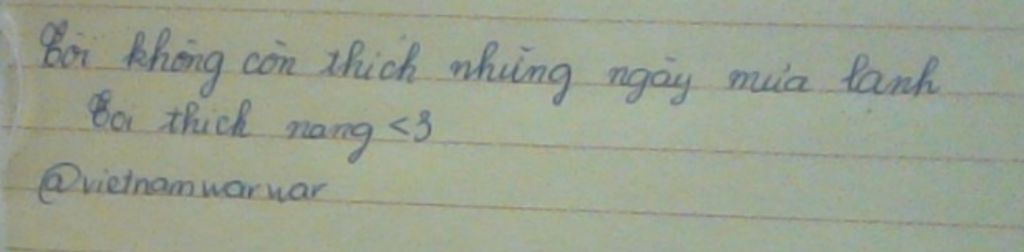 Tôi không còn thích những ngày mưa lạnh
Tôi thích nang <3
@vietnamwarwar